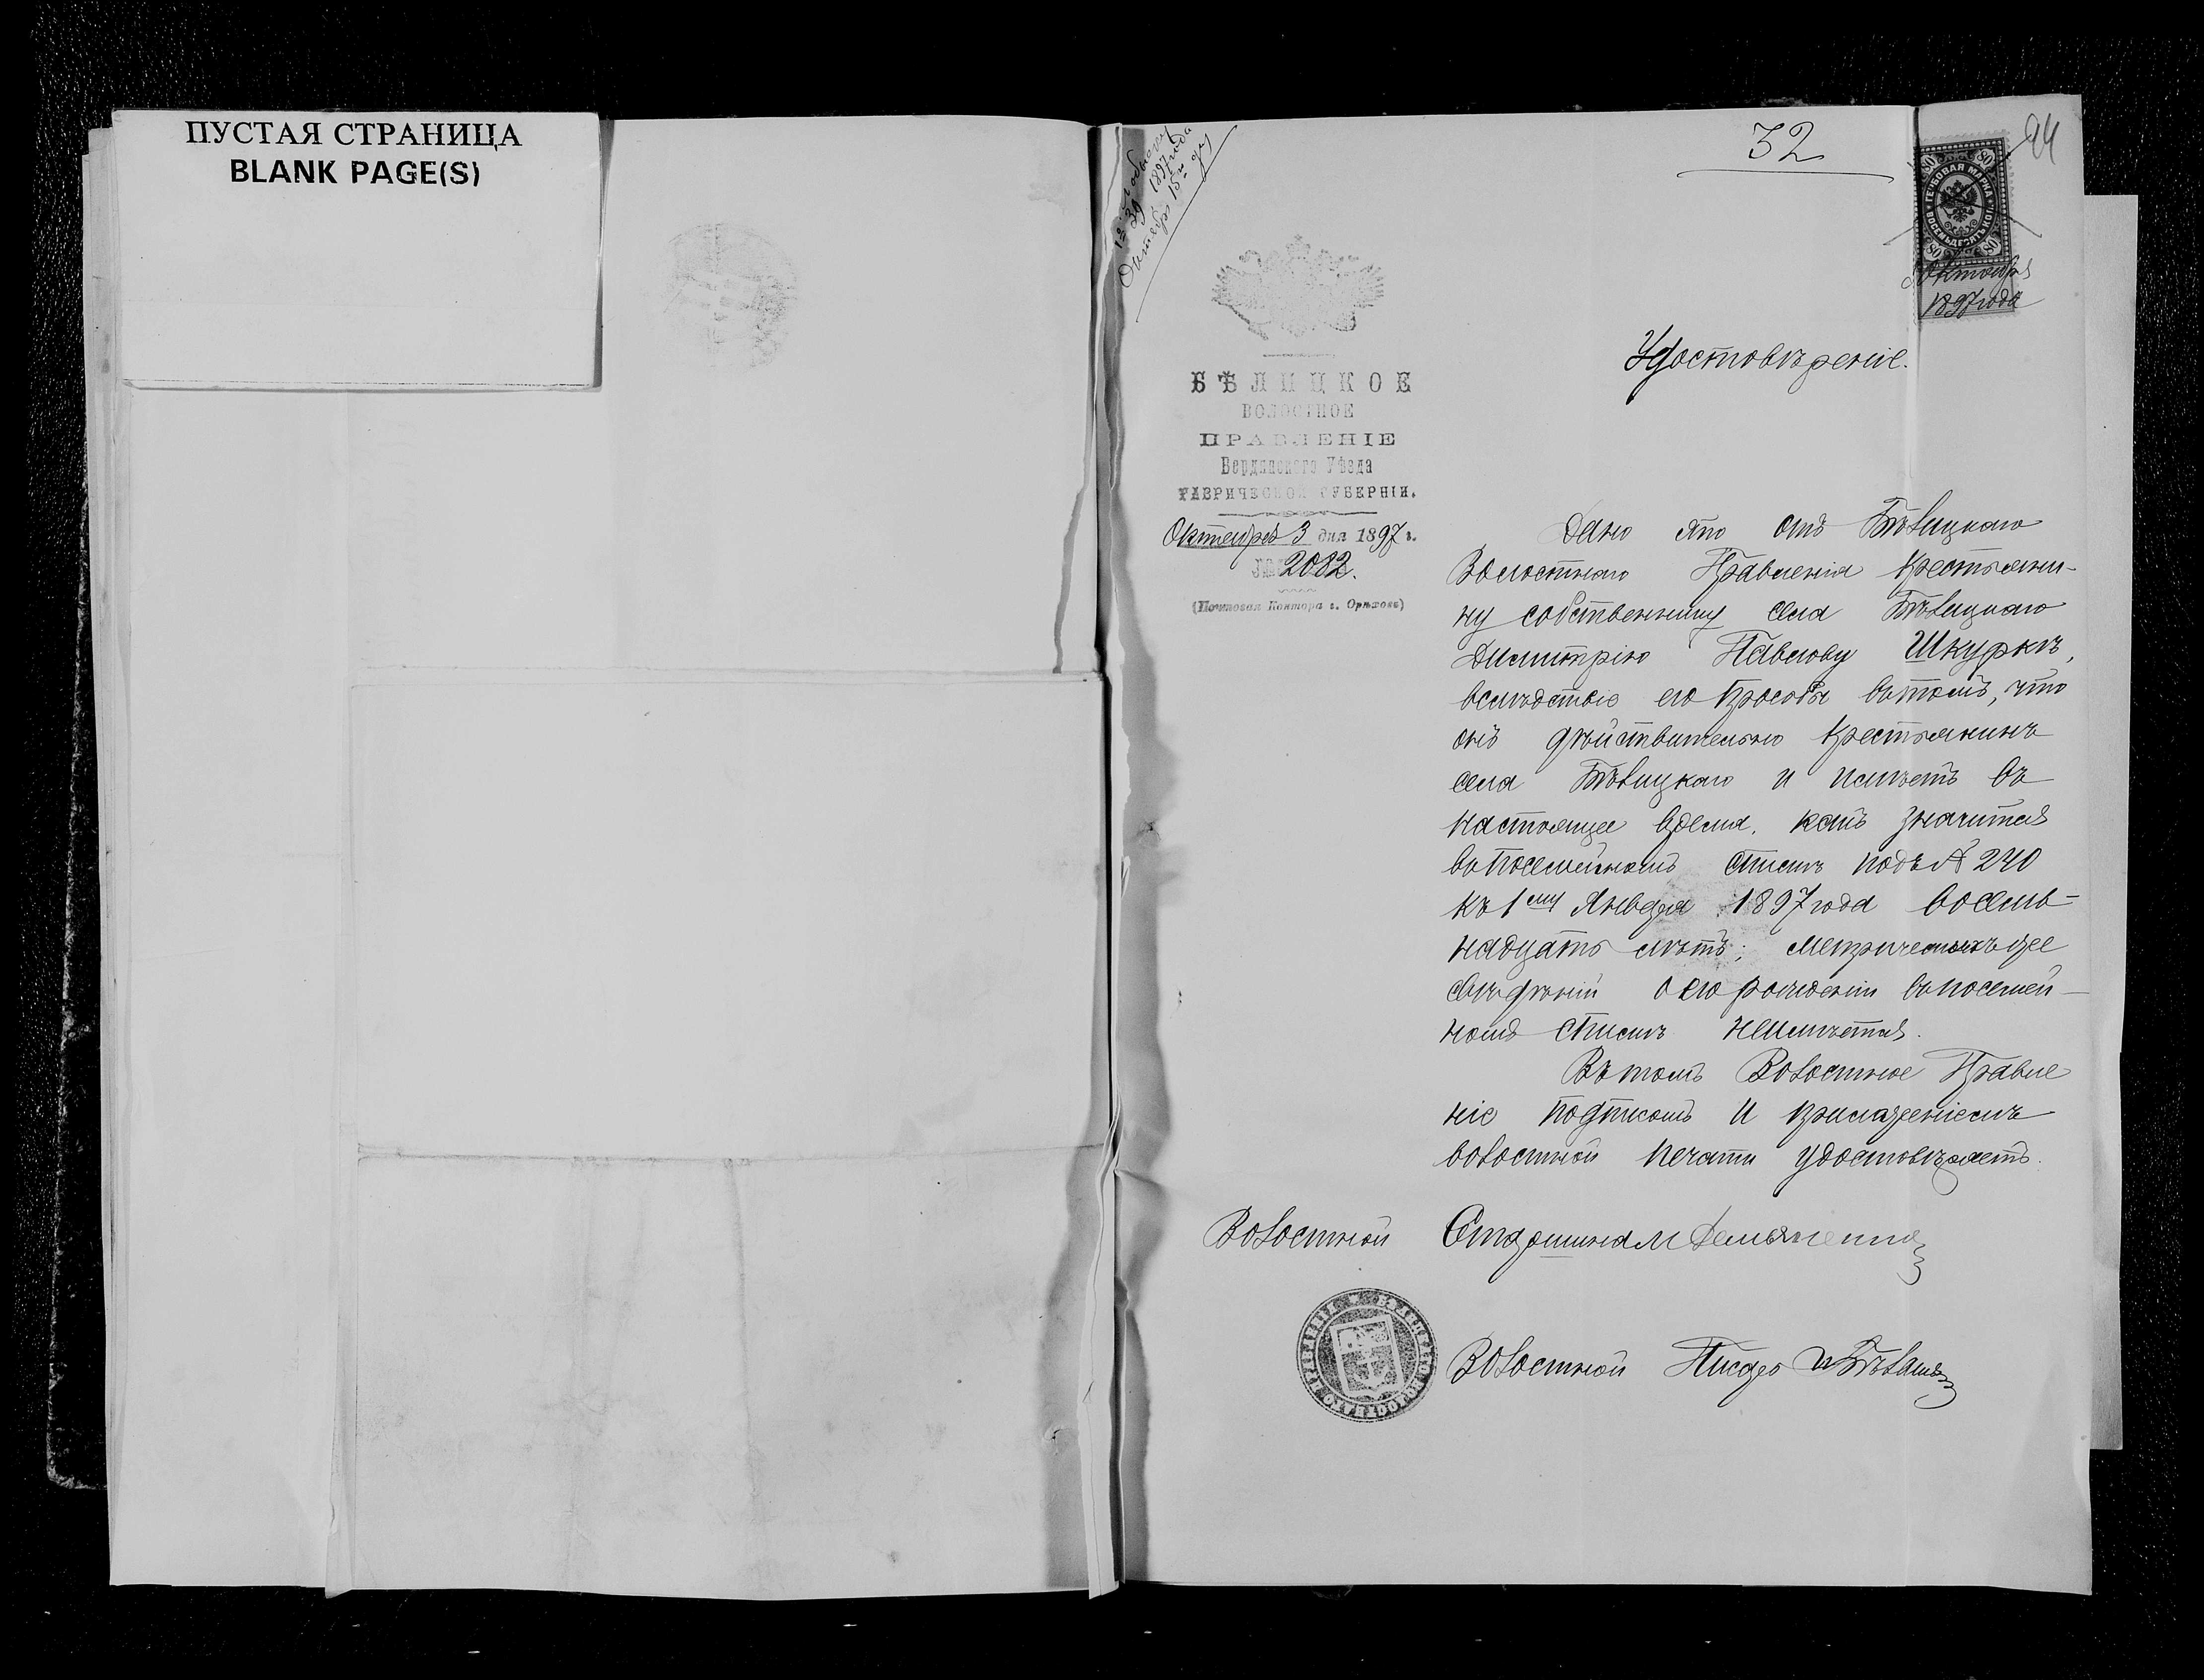 ПУСТАЯ СТРАНИЦА
BLANK PAGE(S)
32
44
80 80
ГЕРБОВАЯ МАРКА
80 80
3 Октября
1897 года
1897 года
БѢЛИЦКОЕ
ВОЛОСТНОЕ
ПРАВЛЕНІЕ
Бердянскаго Уѣзда
ТАВРИЧЕСКОЙ ГУБЕРНІИ.
Октября 3 дня 1897 г.
№ 2082.
(Почтовая Контора г. Орѣховъ)
Удостовѣреніе.
Дано это отъ Бѣлицкаго
Волостнаго Правленія крестьяни-
ну собственнику села Бѣлицкаго
Димитрію Павлову Шкуркѣ,
вслѣдствіе его просьбы въ томъ, что
онъ дѣйствительно крестьянинъ
села Бѣлицкаго и имѣетъ въ
настоящее время, какъ значится
въ посемейномъ спискѣ подъ № 240
къ 1му Января 1897 года восемь-
надцать лѣтъ; метрическихъ же
свѣдѣній о его рожденіи въ посемей-
номъ спискѣ не имѣется.
Въ томъ Волостное Правле
ніе подписомъ и приложеніемъ
волостной печати удостовѣряетъ.
Волостной Старшина М Демяненко
БѢЛИЦКАГО ВОЛОСТНАГО ПРАВЛЕНІЯ
Волостной Писарь